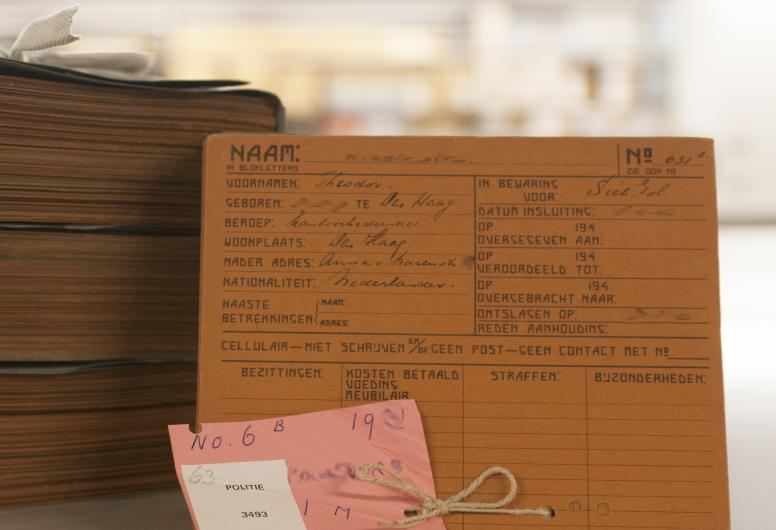 NAAM:
IN BLOKLETTERS
No 631 a.
ZIE OOK No
VOORNAMEN: Theodor.
GEBOREN: TE Den Haag
BEROEP: Kantoorbediende.
WOONPLAATS: Den Haag.
NADER ADRES:
NATIONALITEIT: Nederlander.
NAASTE BETREKKINGEN { NAAM: ADRES:
IN BEWARING VOOR:
DATUM INSLUITING:
OP 194
OVERGEGEVEN AAN:
OP 194
VEROORDEELD TOT:
OP 194
OVERGEBRACHT NAAR:
ONTSLAGEN OP:
REDEN AANHOUDING:
CELLULAIR—NIET SCHRIJVEN EN/OF GEEN POST—GEEN CONTACT MET No
BEZITTINGEN:
KOSTEN BETAALD
VOEDING
MEUBILAIR
STRAFFEN:
BIJZONDERHEDEN:
No. 6 B 19
63
POLITIE
3493
1 M